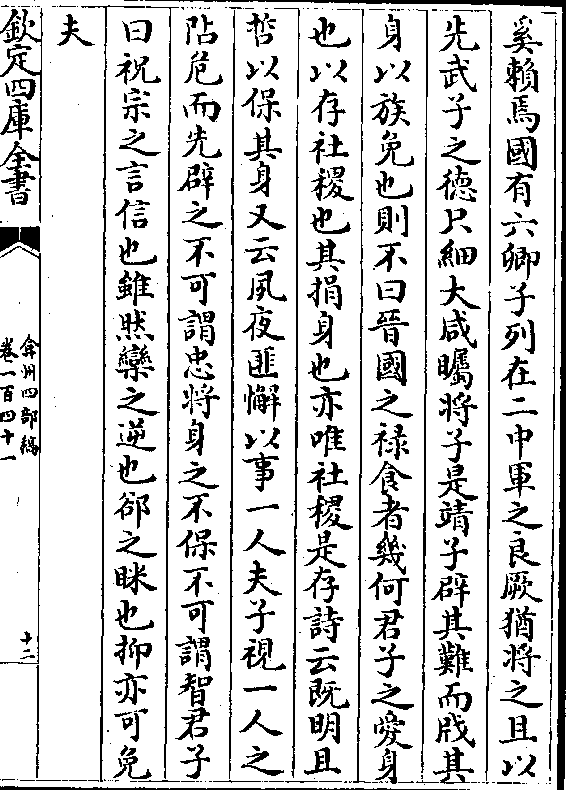 奚賴焉國有六卿子列在二中軍之良厥猶將之且以
先武子之德只細大咸矚將子是靖子辟其難而戕其
身以族免也則不曰晉國之祿食者幾何君子之愛身
也以存社稷也其捐身也亦唯社稷是存詩云既明且
哲以保其身又云夙夜匪懈以事一人夫子視一人之
阽危而先辟之不可謂忠將身之不保不可謂智君子
曰祝宗之言信也雖然欒之逆也郤之眯也抑亦可免
夫
欽定四庫全書
弇州四部稿
卷一百四十一
十二